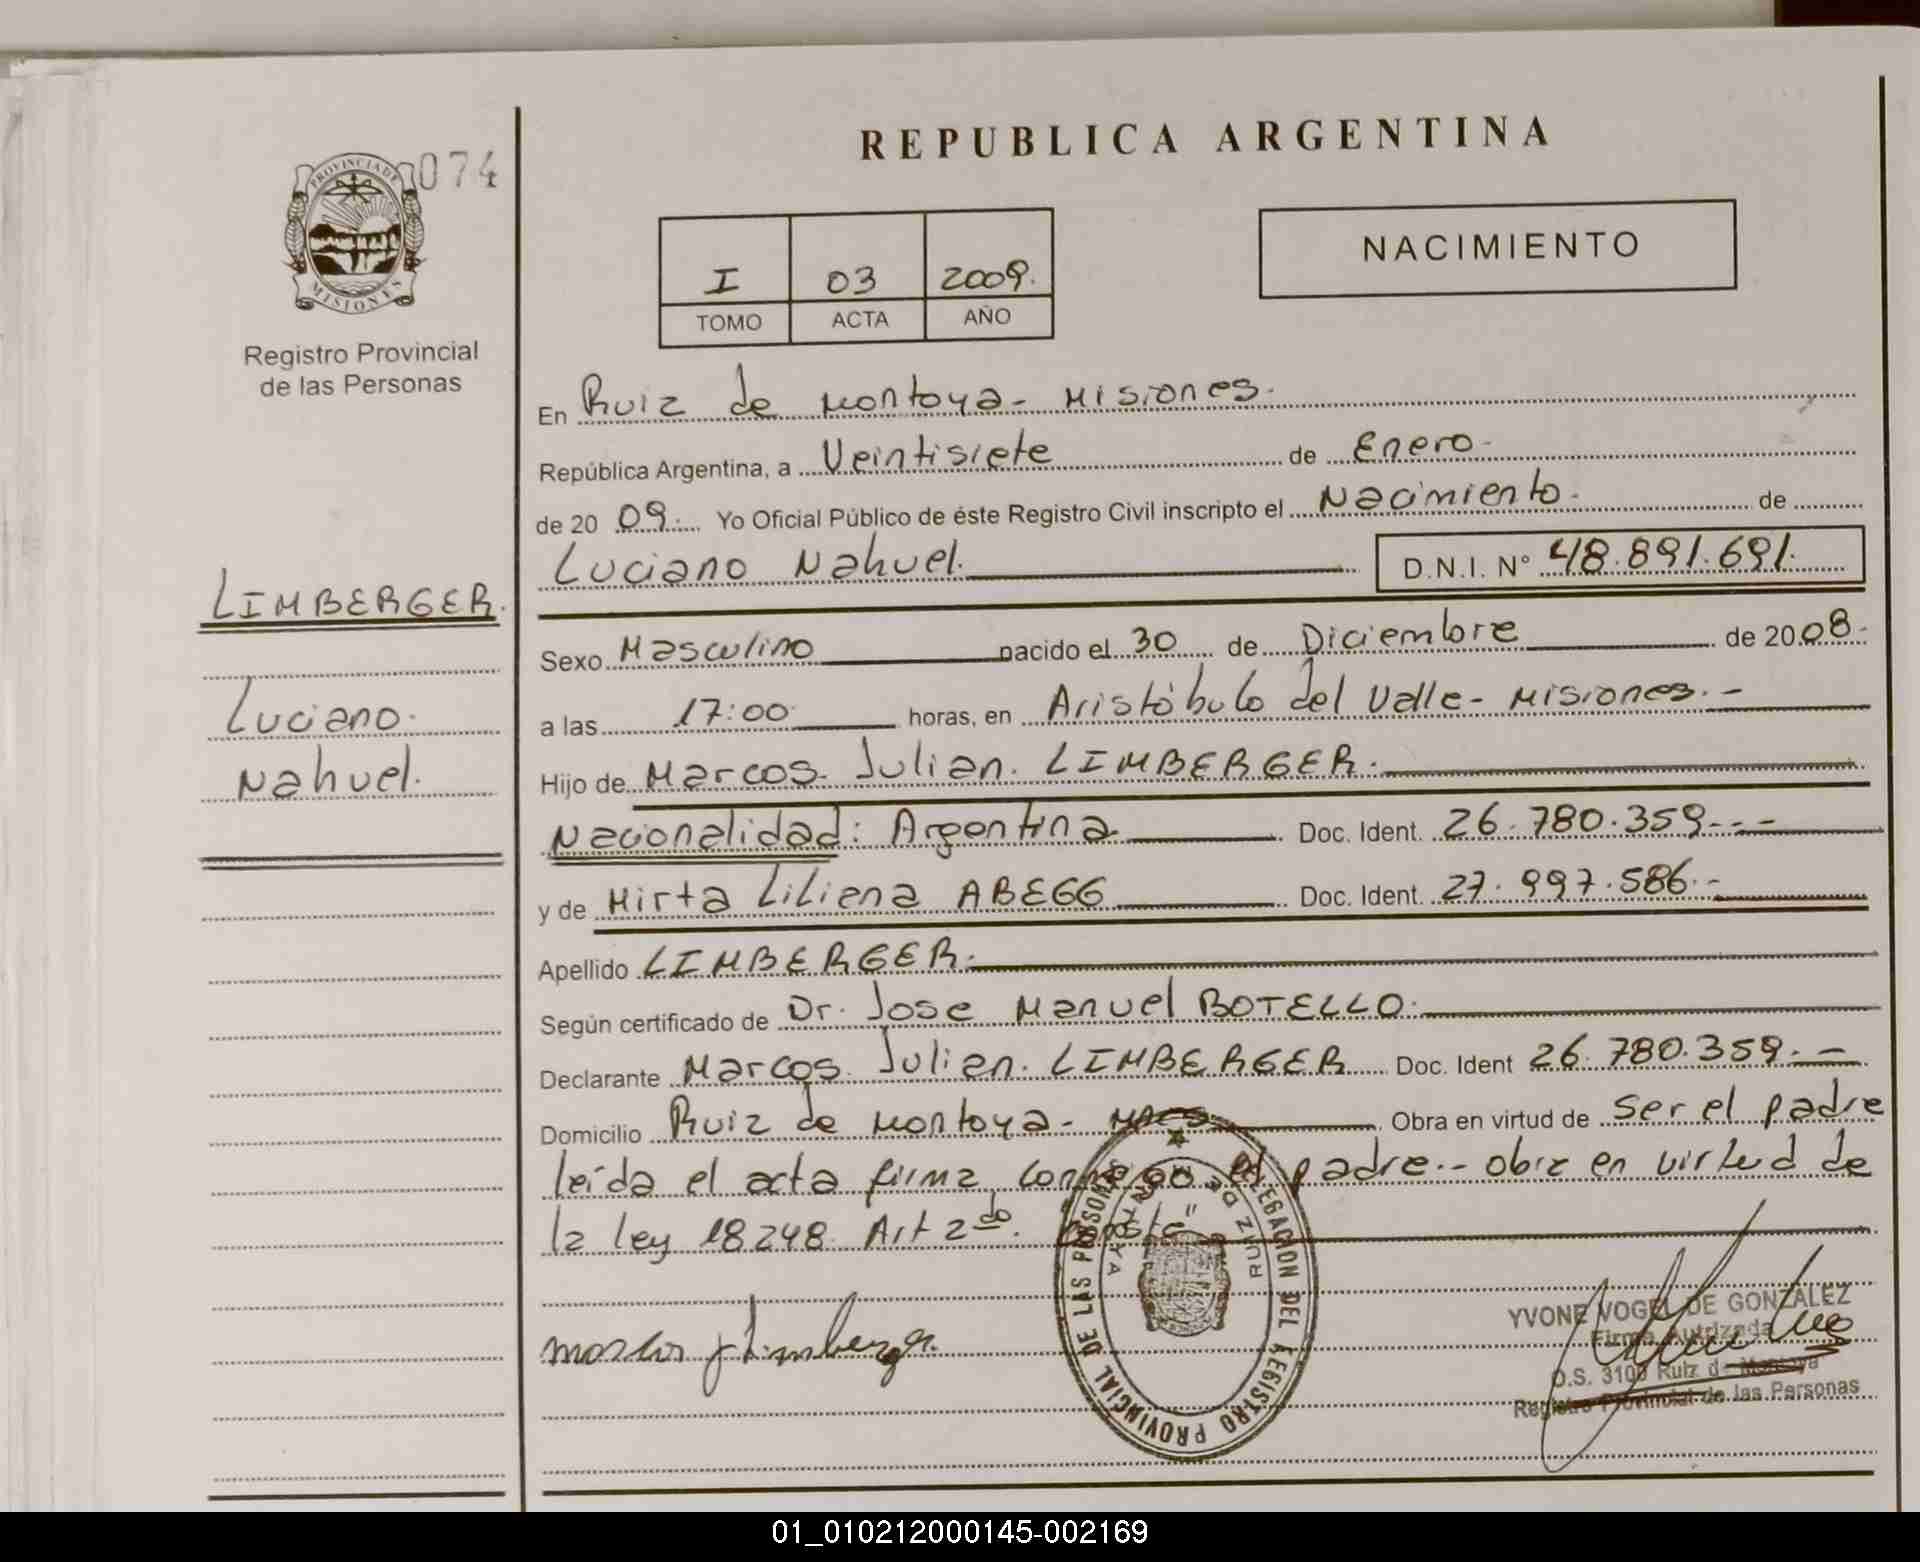 REPUBLICA ARGENTINA
074
PROVINCIA DE MISIONES
Registro Provincial
de las Personas
NACIMIENTO
I 03 2009.
TOMO ACTA AÑO
En Ruiz de Montoya - Misiones.
República Argentina, a Veintisiete de Enero.
de 20 09. Yo Oficial Público de éste Registro Civil inscripto el Nacimiento. de
Luciano Nahuel. D.N.I. N° 48.891.691.
LIMBERGER.
Luciano.
Nahuel.
Sexo Masculino nacido el 30 de Diciembre de 20 08.
a las 17:00 horas, en Aristóbulo del Valle - Misiones. -
Hijo de Marcos Julian. LIMBERGER.
Nacionalidad: Argentina Doc. Ident. 26.780.359.--
y de Mirta Liliana ABEGG Doc. Ident. 27.997.586.-
Apellido LIMBERGER.
Según certificado de Dr. Jose Manuel BOTELLO.
Declarante Marcos Julian. LIMBERGER Doc. Ident 26.780.359.-
Domicilio Ruiz de Montoya - Obra en virtud de Ser el padre
leída el acta firma conmigo el padre.- obra en virtud de
la ley 18248 Art 2do.
marcos j Limberger
DELEGACION DEL REGISTRO PROVINCIAL DE LAS PERSONAS
RUIZ DE MONTOYA
YVONE VOGEL DE GONZALEZ
Firma Autrizada
D.S. 3100 Ruiz de Montoya
Registro Provincial de las Personas
01_010212000145-002169